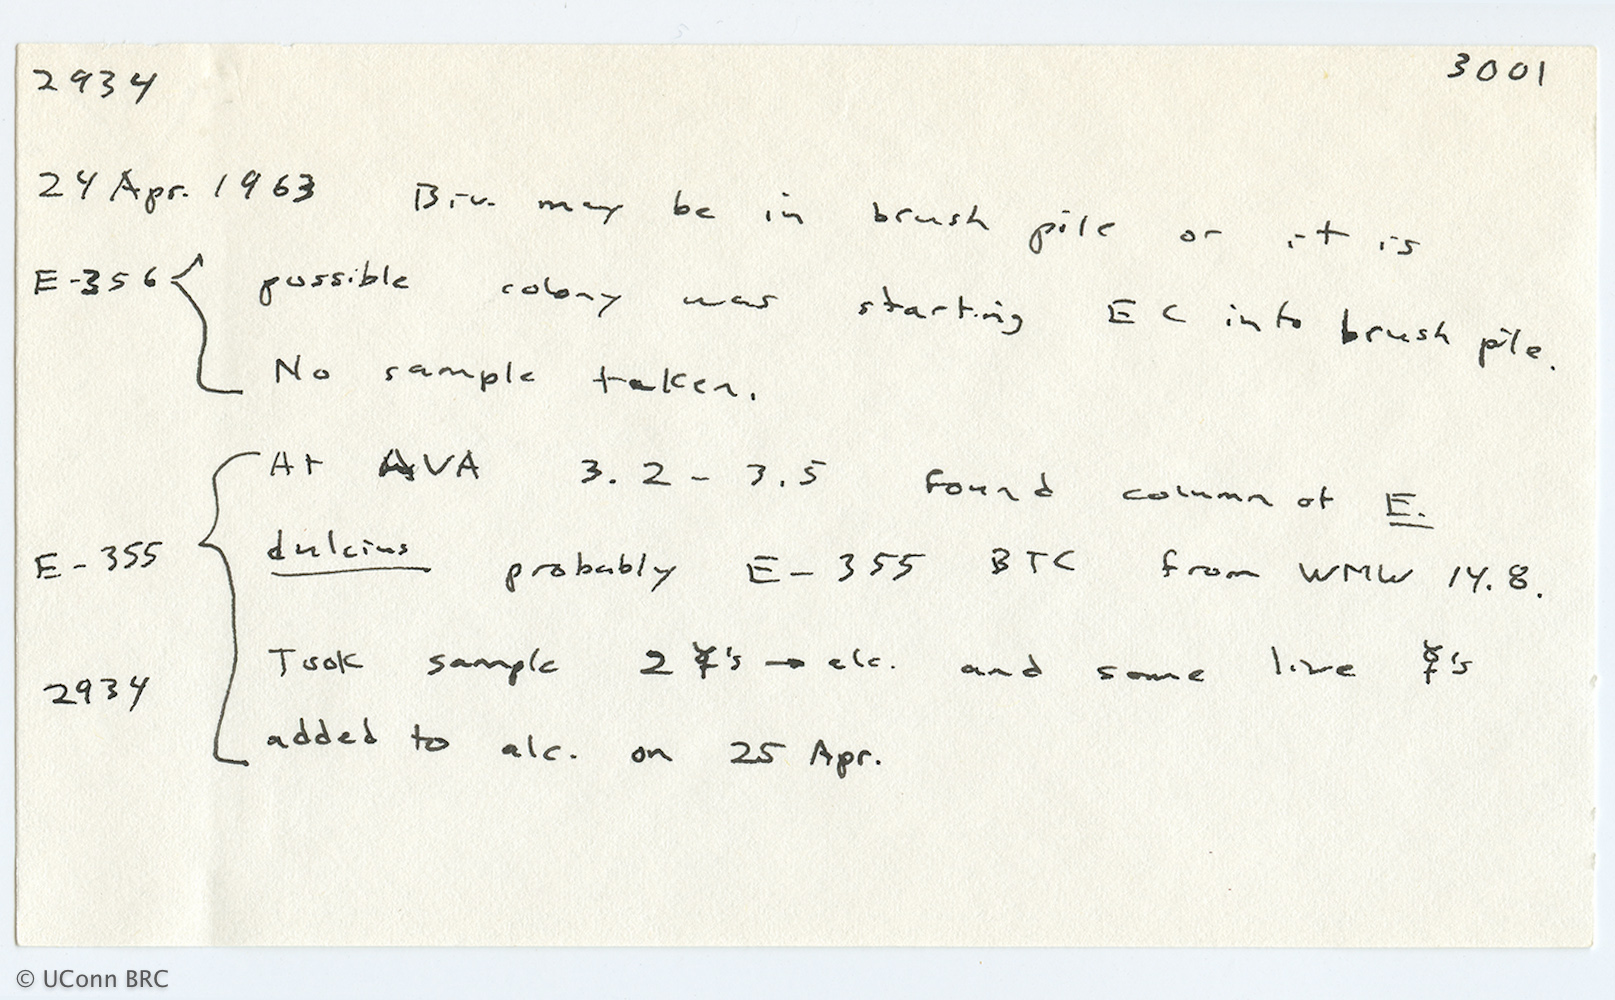 2934 3001
24 Apr. 1963 Biv. may be in brush pile or it is
E-356 possible colony was starting EC into brush pile.
No sample taken.
At AVA 3.2 - 3.5 found column of E.
E-355 dulcius probably E-355 BTC from WMW 14.8.
2934 Took sample 2 ☿'s → alc. and some live ☿'s
added to alc. on 25 Apr.
© UConn BRC